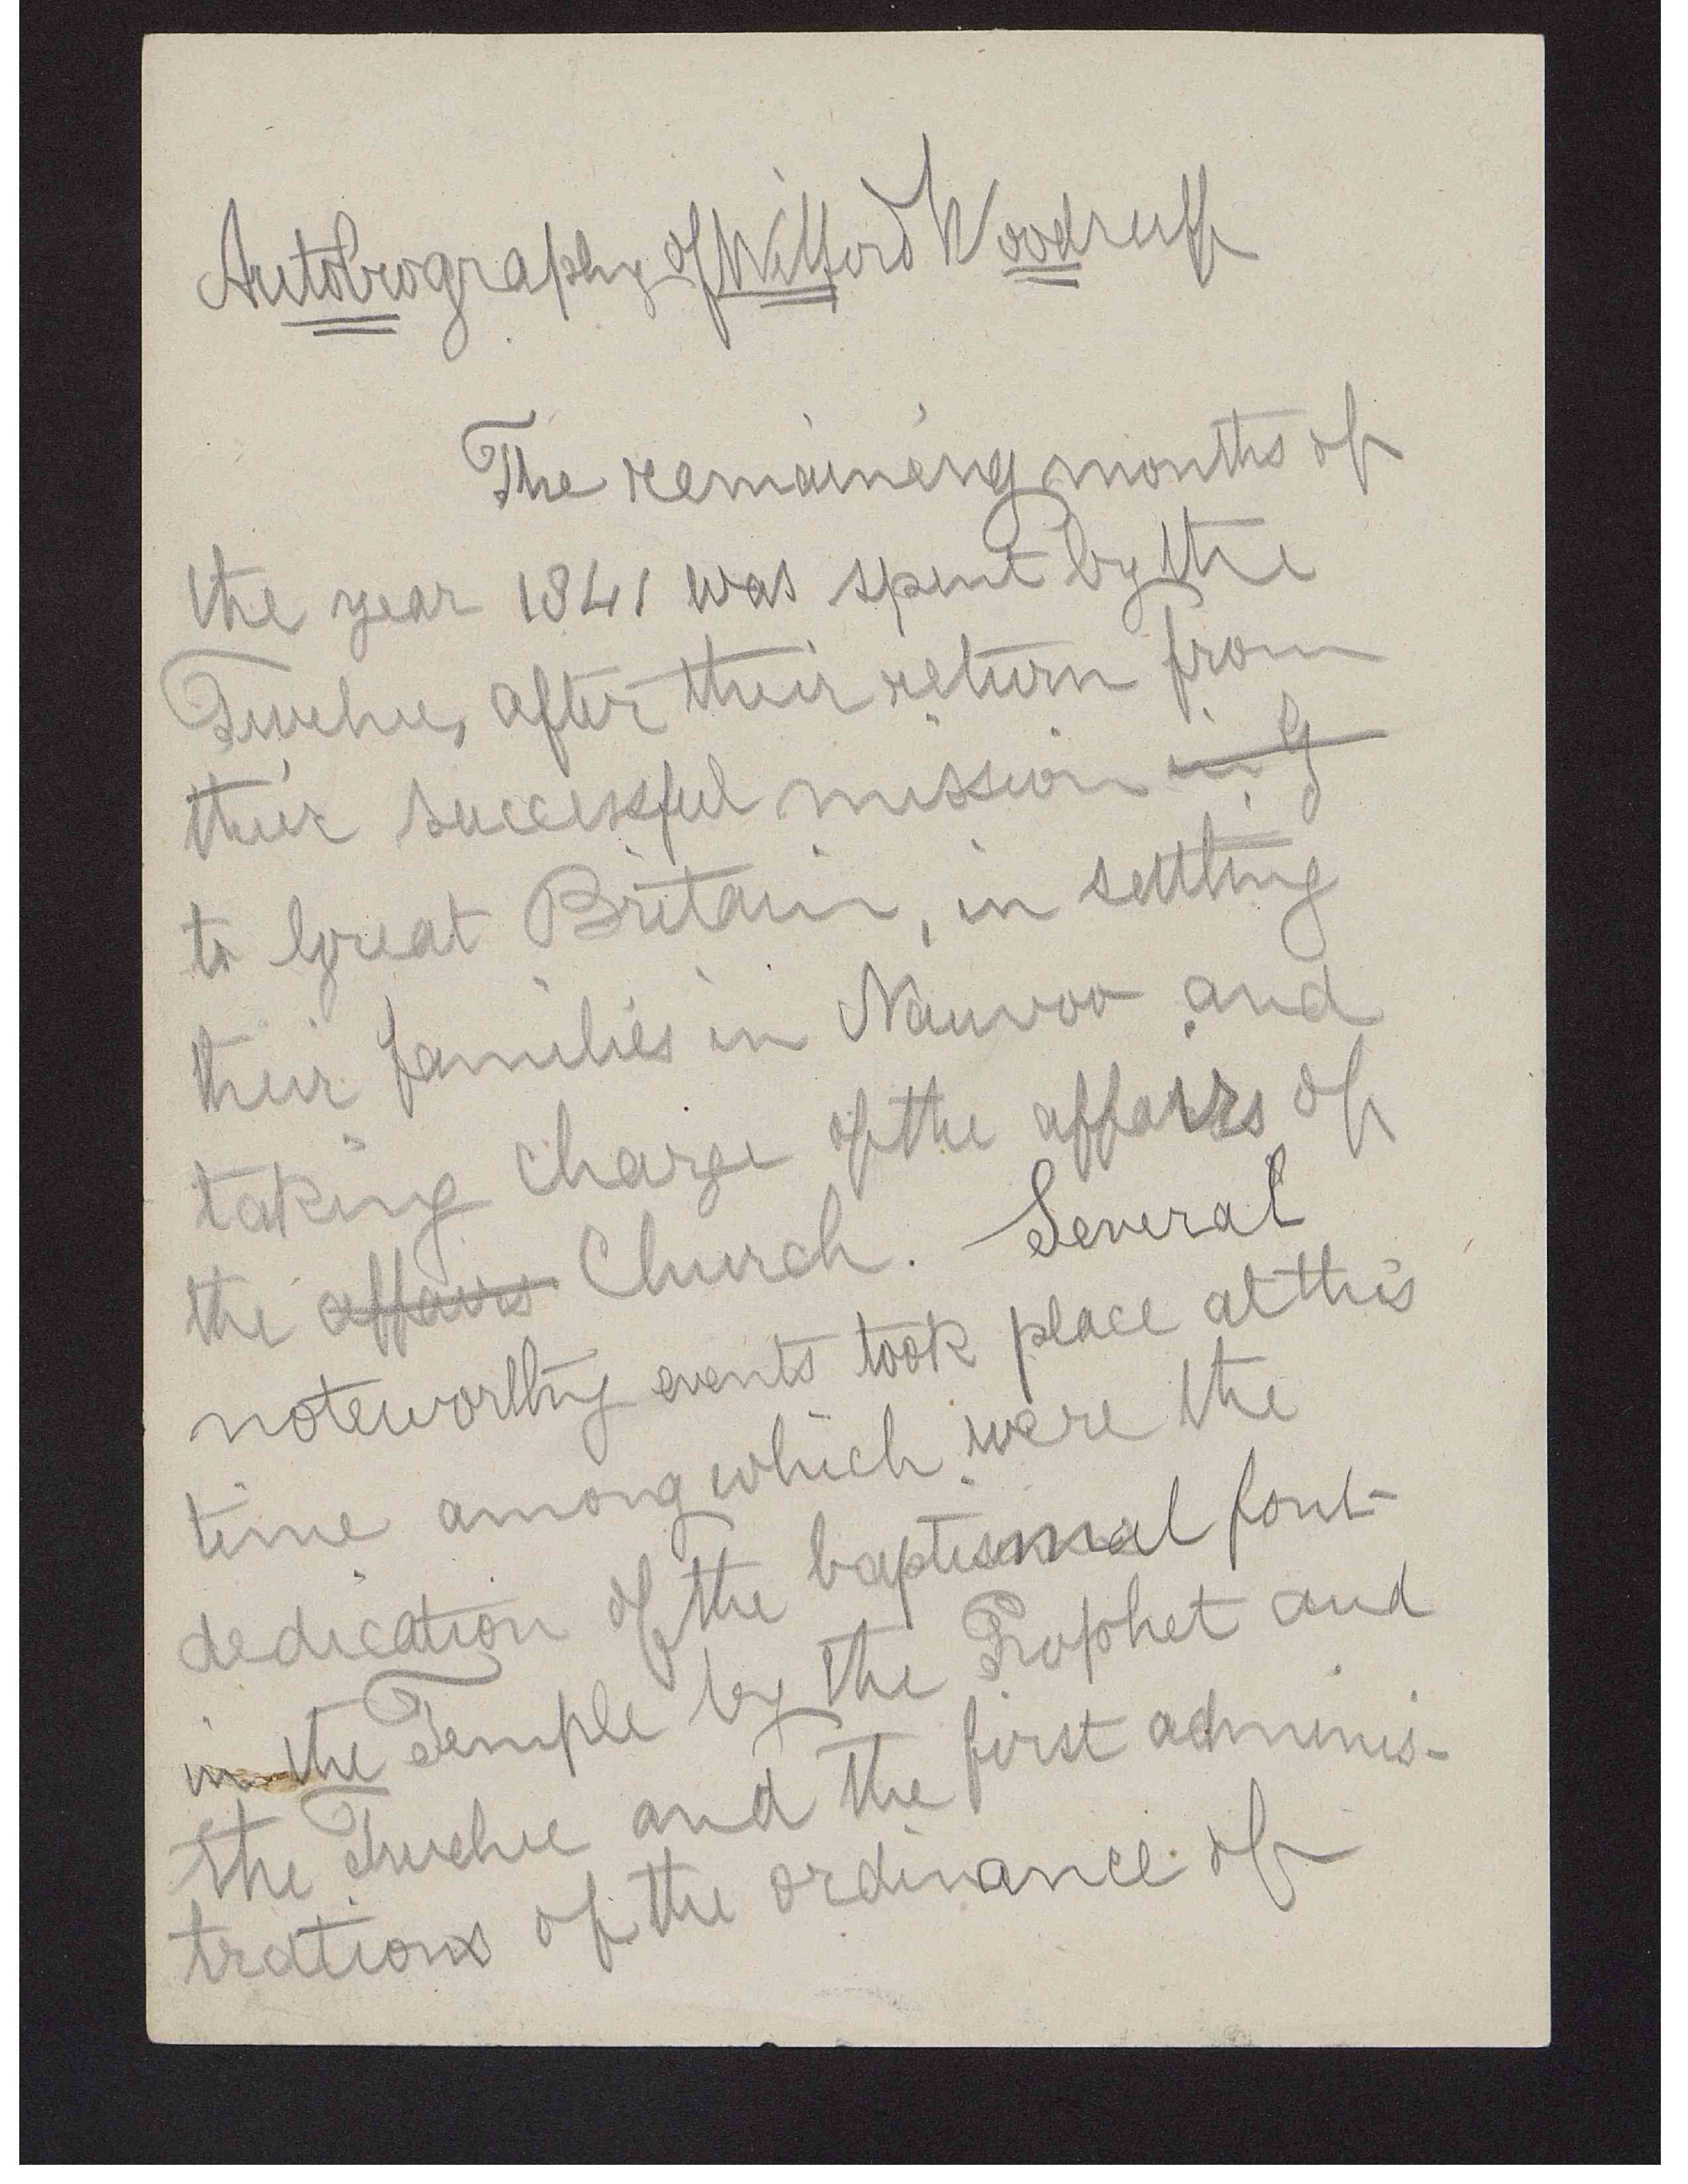 Autobiography of Wilford Woodruff
The remaining months of
the year 1841 was spent by the
Twelve, after their return from
their successful mission in G
to Great Britain, in settling
their families in Nauvoo and
taking charge of the affairs of
the affairs Church. Several
noteworthy events took place at this
time among which were the
dedication of the baptismal font
in the Temple by the Prophet and
the Twelve and the first adminis-
trations of the ordinance of